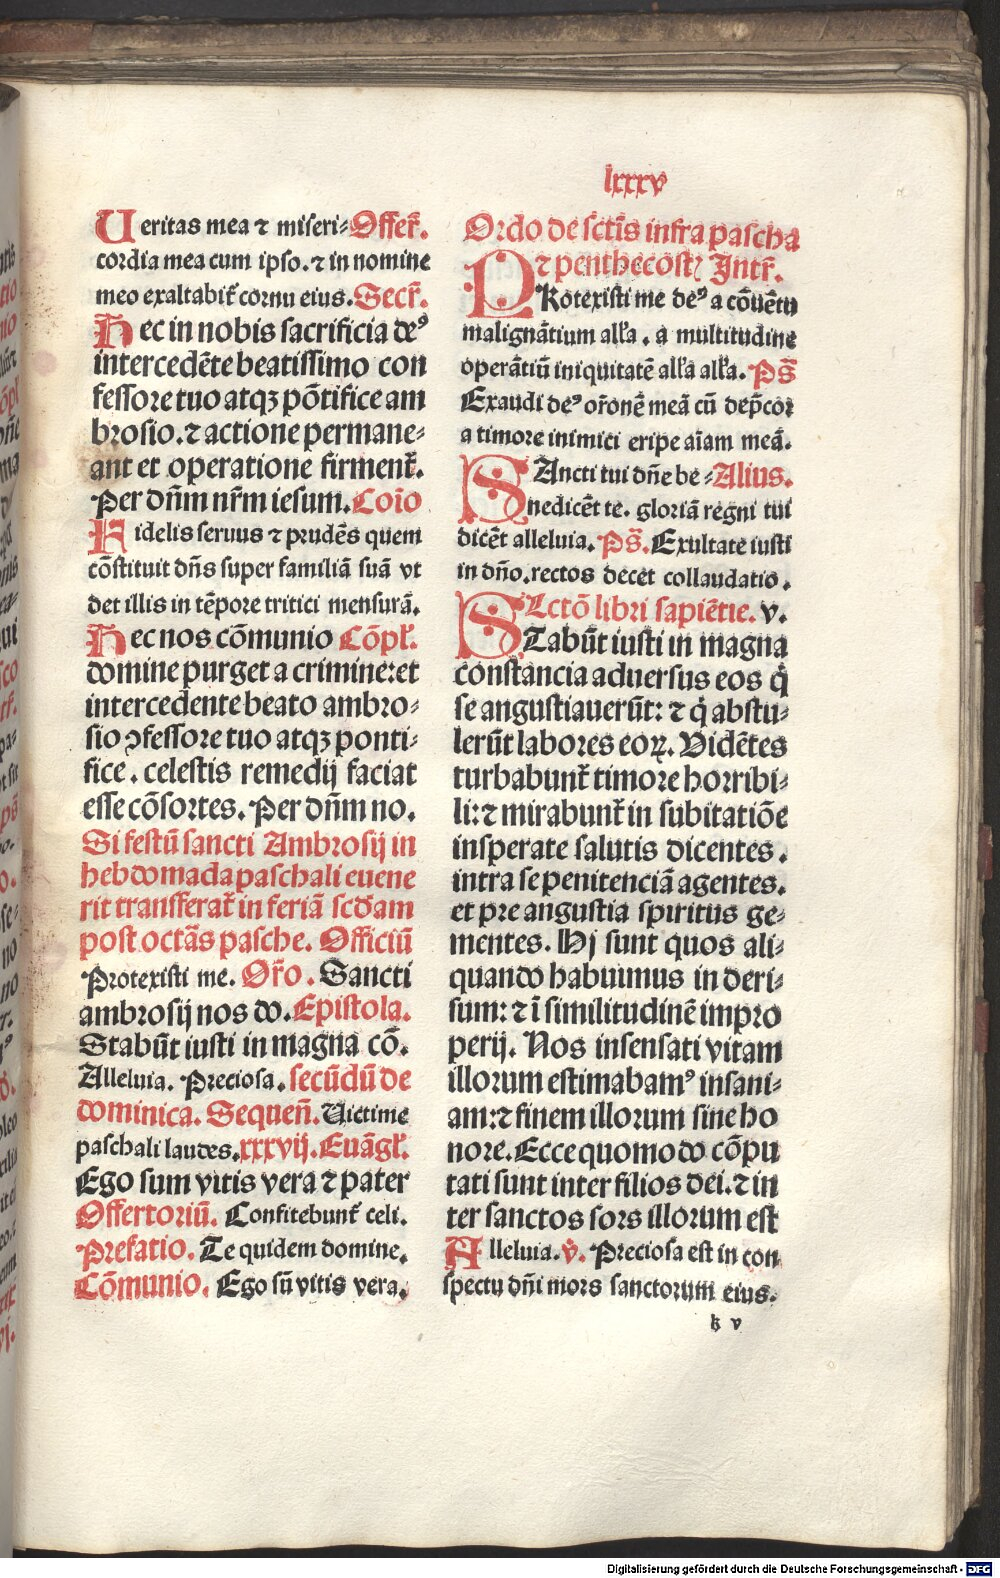 lxxxv
Ueritas mea ⁊ miseri⸗Offer̃.
cordia mea cum ipso. ⁊ in nomine
meo exaltabit᷑ cornu eius. Secr̃.
Hec in nobis sacrificia de⁹
intercedẽte beatissimo con
fessore tuo atqꝫ põtifice am
brosio. ⁊ actione permane⸗
ant et operatione firment᷑.
Per dñm nr̃m iesum. Coĩo
Fidelis seruus ⁊ prudẽs quem
cõstituit dñs super familiã suã vt
det illis in tẽpore tritici mensurã.
Hec nos cõmunio Cõpl̃.
domine purget a crimine: et
intercedente beato ambro⸗
sio ꝯfessore tuo atqꝫ ponti⸗
fice. celestis remedij faciat
esse cõsortes. Per dñm no.
Si festũ sancti Ambrosij in
hebdomada paschali euene
rit transferat᷑ in feriã scd̃am
post octãs pasche. Officiũ
Protexisti me. Or̃o. Sancti
ambrosij nos do. Epistola.
Stabũt iusti in magna cõ.
Alleluia. Preciosa. secũdũ de
dominica. Sequeñ. Uictime
paschali laudes. xxxvij. Euãgl̃.
Ego sum vitis vera ⁊ pater
Offertoriũ. Confitebunt᷑ celi.
Prefatio. Te quidem domine.
Cõmunio. Ego sũ vitis vera.
Ordo de sctĩs infra pascha
⁊ penthecostꝭ Intr̃.
PRotexisti me de⁹ a cõuẽtu
malignãtium alĺa. a multitudine
operãtiũ iniquitatẽ alĺa alĺa. Ps̃
Exaudi de⁹ or̃onẽ meã cũ dep̃cor
a timore inimici eripe aĩam meã.
SAncti tui dñe be⸗Alius.
nedicẽt te. gloriã regni tui
dicẽt alleluia. Ps̃. Exultate iusti
in dño. rectos decet collaudatio.
Lctõ libri sapiẽtie. v.
STabũt iusti in magna
constancia aduersus eos q̃
se angustiauerũt: ⁊ q̃ abstu⸗
lerũt labores eoꝝ. Uidẽtes
turbabunt᷑ timore horribi⸗
li: ⁊ mirabunt᷑ in subitatiõe
insperate salutis dicentes.
intra se penitenciã agentes.
et pre angustia spiritus ge⸗
mentes. Hj sunt quos ali⸗
quando habuimus in deri⸗
sum: ⁊ ĩ similitudinẽ impro
perij. Nos insensati vitam
illorum estimabam⁹ insani⸗
am: ⁊ finem illorum sine ho
nore. Ecce quomodo cõpu
tati sunt inter filios dei. ⁊ in
ter sanctos sors illorum est
Alleluia. v̾. Preciosa est in con
spectu dñi mors sanctorum eius.
k v
Digitalisierung gefördert durch die Deutsche Forschungsgemeinschaft - DFG